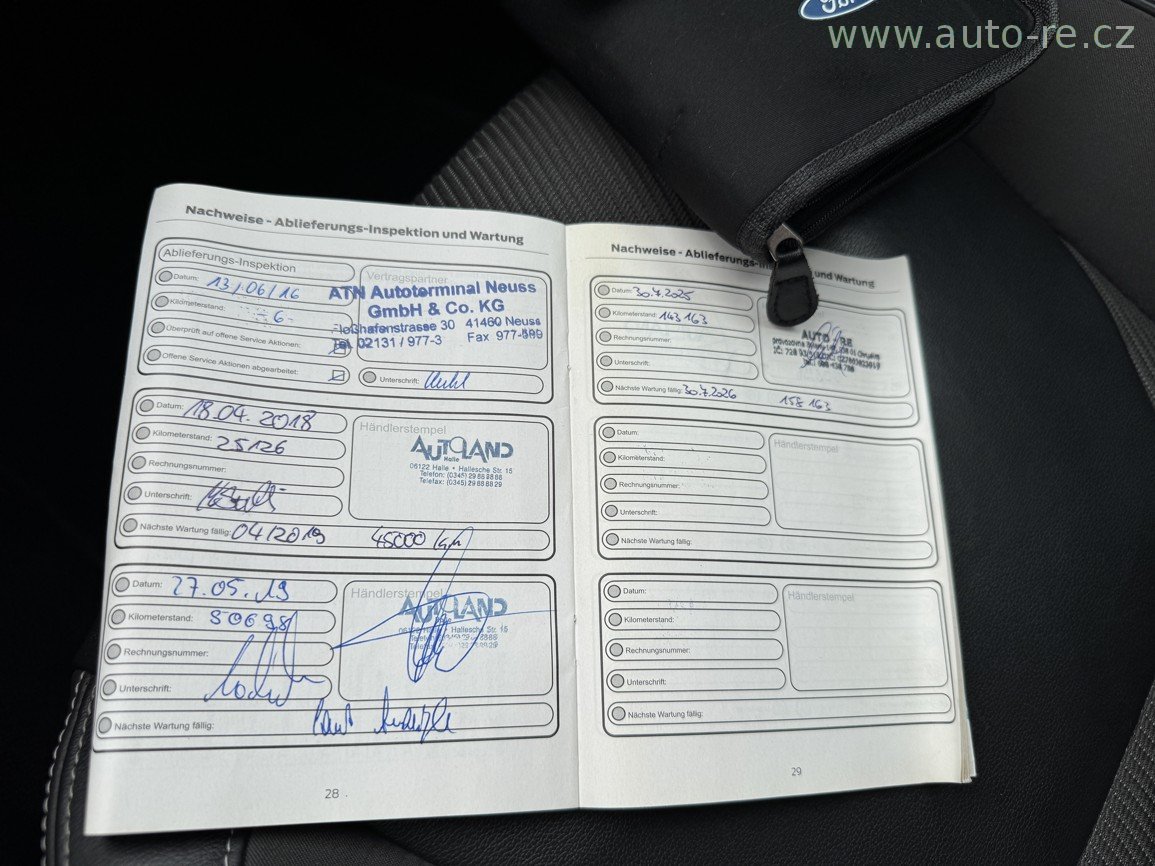 Ford
www.auto-re.cz
Nachweise - Ablieferungs-Inspektion und Wartung
Ablieferungs-Inspektion
Datum: 13/06/16
Kilometerstand: 6-
Überprüft auf offene Service Aktionen:
Offene Service Aktionen abgearbeitet:
Vertragspartner
ATN Autoterminal Neuss
GmbH & Co. KG
Floßhafenstrasse 30 41460 Neuss
Tel. 02131 / 977-3 Fax 977-599
Unterschrift:
Datum: 18.04.2018
Kilometerstand: 25126
Rechnungsnummer:
Unterschrift:
Nächste Wartung fällig: 04/2019 45000 km
Händlerstempel
AUTOLAND
Halle
06122 Halle • Hallesche Str. 15
Telefon: (0345) 29 88 88 88
Telefax: (0345) 29 88 88 29
Datum: 27.05.19
Kilometerstand: 50698
Rechnungsnummer:
Unterschrift:
Nächste Wartung fällig: laut Anzeige
Händlerstempel
AUTOLAND
06122 Halle • Hallesche Str. 15
28
Nachweise - Ablieferungs- und Wartung
Datum: 30.7.2025
Kilometerstand: 143 163
Rechnungsnummer:
Unterschrift:
Nächste Wartung fällig: 30.7.2026 158 163
AUTO RE
Datum:
Kilometerstand:
Rechnungsnummer:
Unterschrift:
Nächste Wartung fällig:
Händlerstempel
Datum:
Kilometerstand:
Rechnungsnummer:
Unterschrift:
Nächste Wartung fällig:
Händlerstempel
29